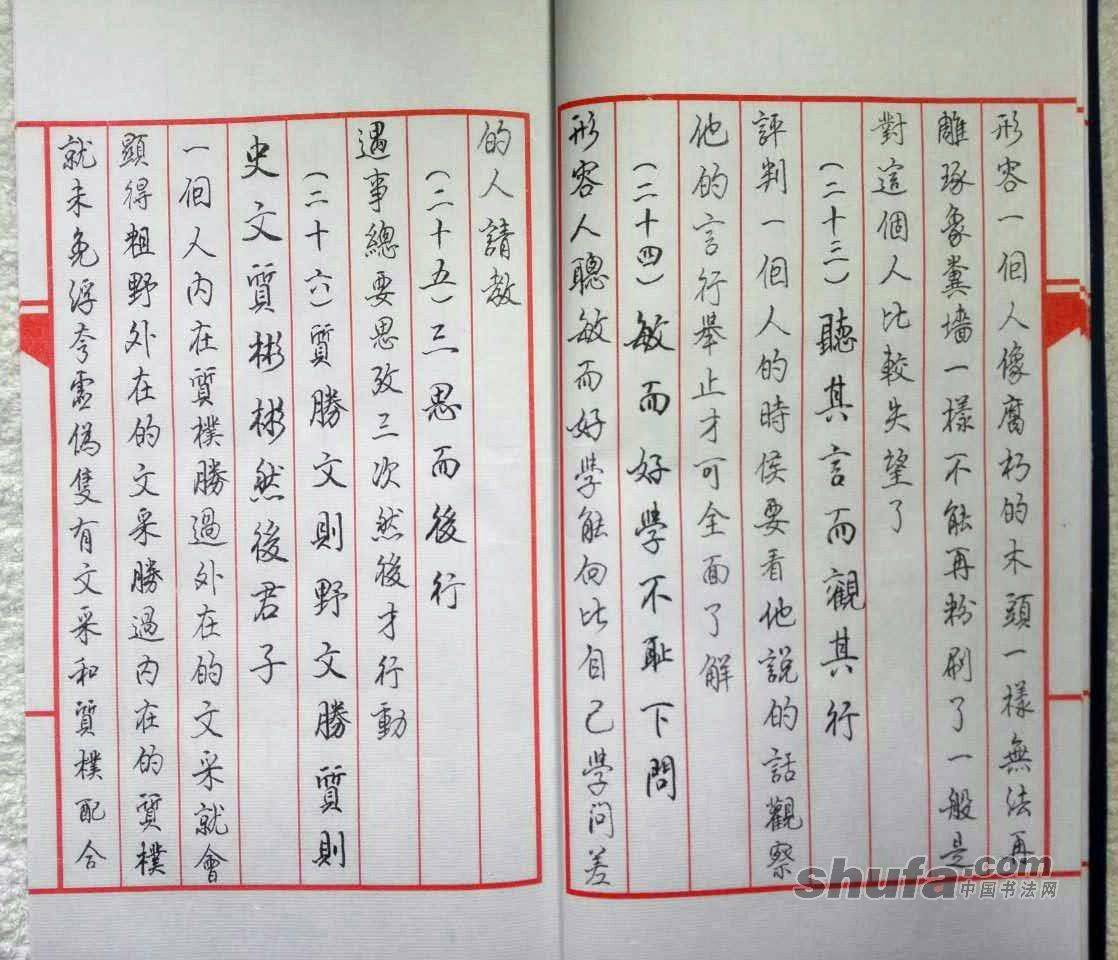 形容一個人像腐朽的木頭一樣無法再
雕琢象糞墻一樣不能再粉刷了一般是
對這個人比較失望了
(二十三)聽其言而觀其行
評判一個人的時侯要看他說的話觀察
他的言行舉止才可全面了解
(二十四)敏而好學不耻下問
形容人聰敏而好學能向比自己學問差
的人請教
(二十五)三思而後行
遇事總要思攷三次然後才行動
(二十六)質勝文則野文勝質則
史文質彬彬然後君子
一個人內在質樸勝過外在的文采就會
顯得粗野外在的文采勝過內在的質樸
就未免浮夸虛偽隻有文采和質樸配合
shufa.com
中国书法网